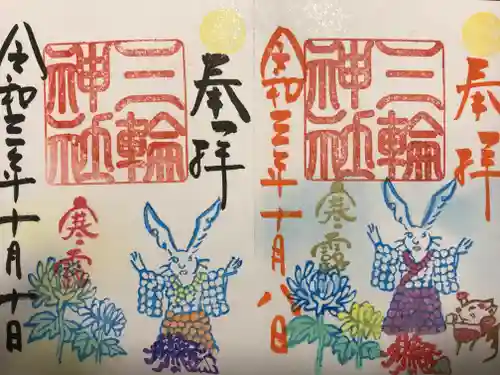 奉拝
三輪神社
寒露
令和三年十月十日
奉拝
三輪神社
寒露
令和三年十月八日